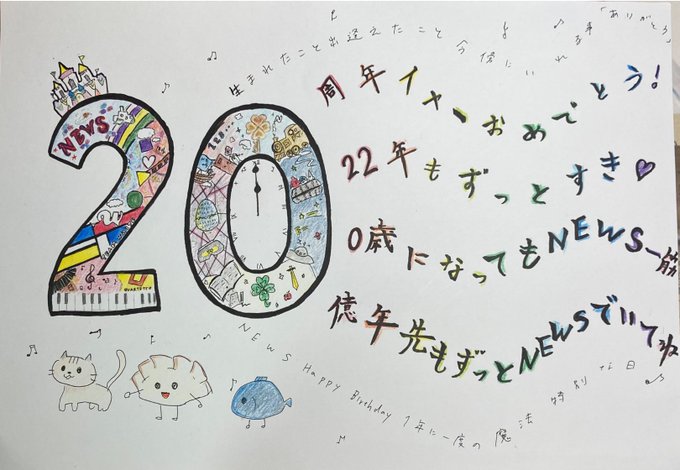 生まれたこと出逢えたこと 今傍にいれる事 「ありがとう」
NEWS
20
QUARTETTO
周年イヤーおめでとう!
22年もずっとすき♡
0歳になってもNEWS一筋
億年先もずっとNEWSでいてね
NEWS Happy Birthday 1年に一度の魔法 特別な日